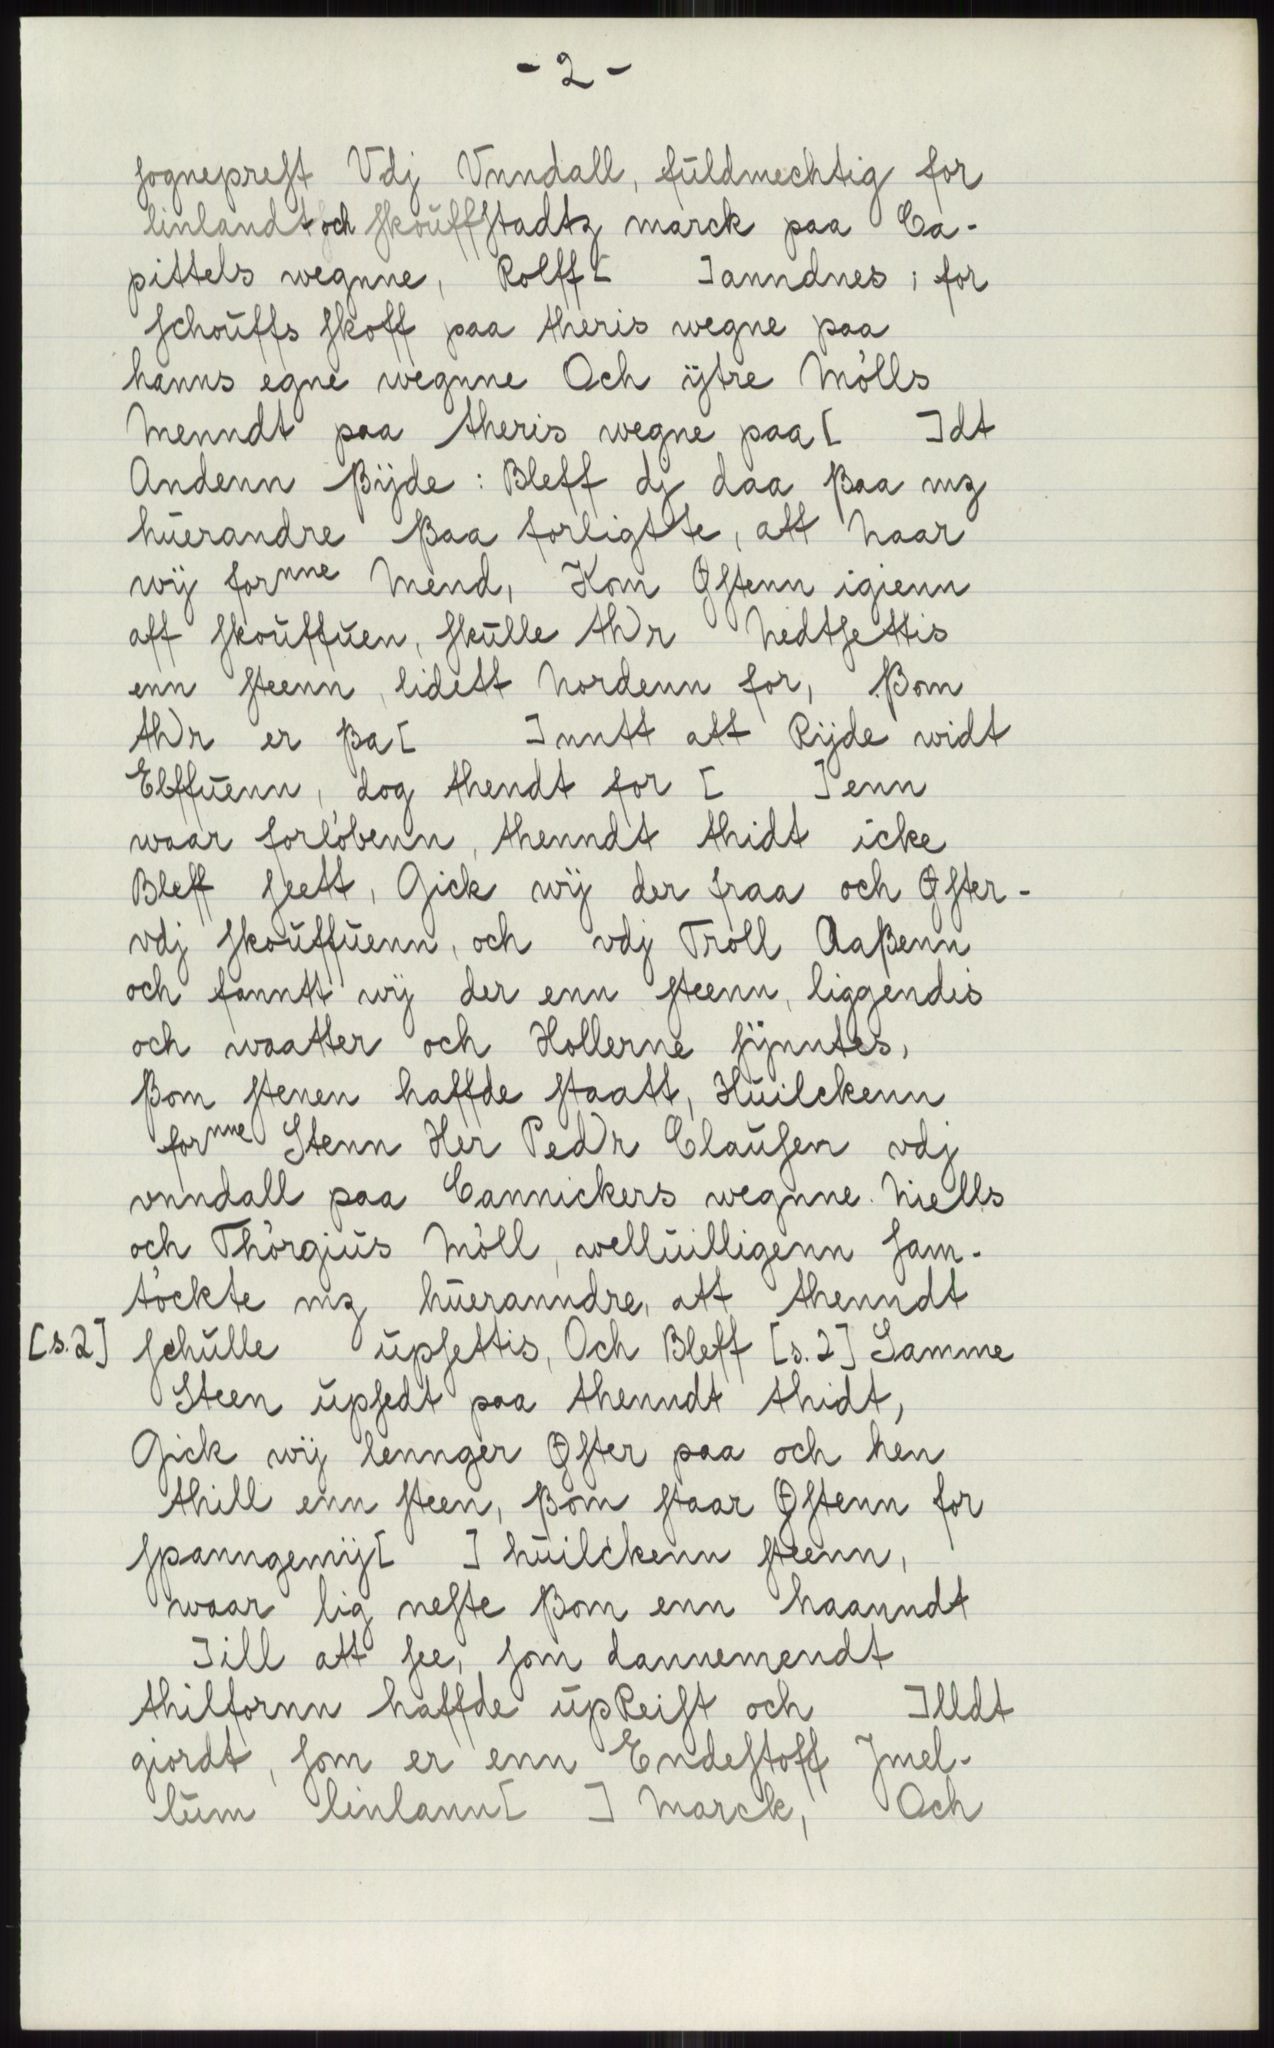 - 2 -
sogneprest Vdj Vnndall, fuldmechtig for
linlandt och skouffstadtz marck paa Ca-
pittels wegnne, Rolff [ ] anndnes, for
schouffs skoff paa theris wegne paa
hanns egne wegnne Och ÿtre Mölls
Menndt paa theris wegne paa [ ]dt
Andenn ßijde: Bleff dj daa ßaa mz
huerandre ßaa forligtte, att Naar
wij fornne Mend, Kom Østenn igienn
aff skouffuen, skulle thr Nedtsettis
enn steenn, lidett Nordenn for, ßom
thr er ßa[ ]nntt att Rijde widt
Elffuenn, dog thendt for [ ]enn
waar forlöbenn, thenndt thidt icke
Bleff seett, Gick wij der fraa och Øster-
vdj skouffuenn, och vdj Troll Aaßenn
och fanntt wij der enn steenn, liggendis
och waatter och Hollerne sÿnntes,
ßom stenen haffde staatt, Huilckenn
fornne Stenn Her Pedr Clausen vdj
vnndall paa Cannickers wegnne. Niells
och Thörgius Möll, welluilligenn sam-
töckte mz hueranndre, att thenndt
[s.2] schulle upsettis, Och Bleff [s.2] Samme
Steen upsedt paa thenndt thidt,
Gick wij lennger Øster paa och hen
thill enn steen, ßom staar Østenn for
spanngemij[ ] huilckenn steenn,
waar lig neste ßom enn haanndt
]ill att see, som dannemendt
thilfornn haffde upReist och ]lldt
giordt, som er enn Endestoff Jmel-
lum linlann[ ] Marck, Och